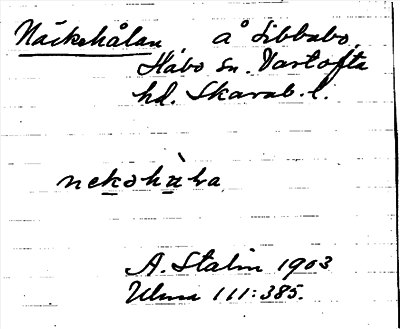 Näckhålan, å Sibbabo,
Håbo sn. Vartofta
hd. Skarab. l.
nekohàla
A. Stalin 1903
Ulma 111:385.